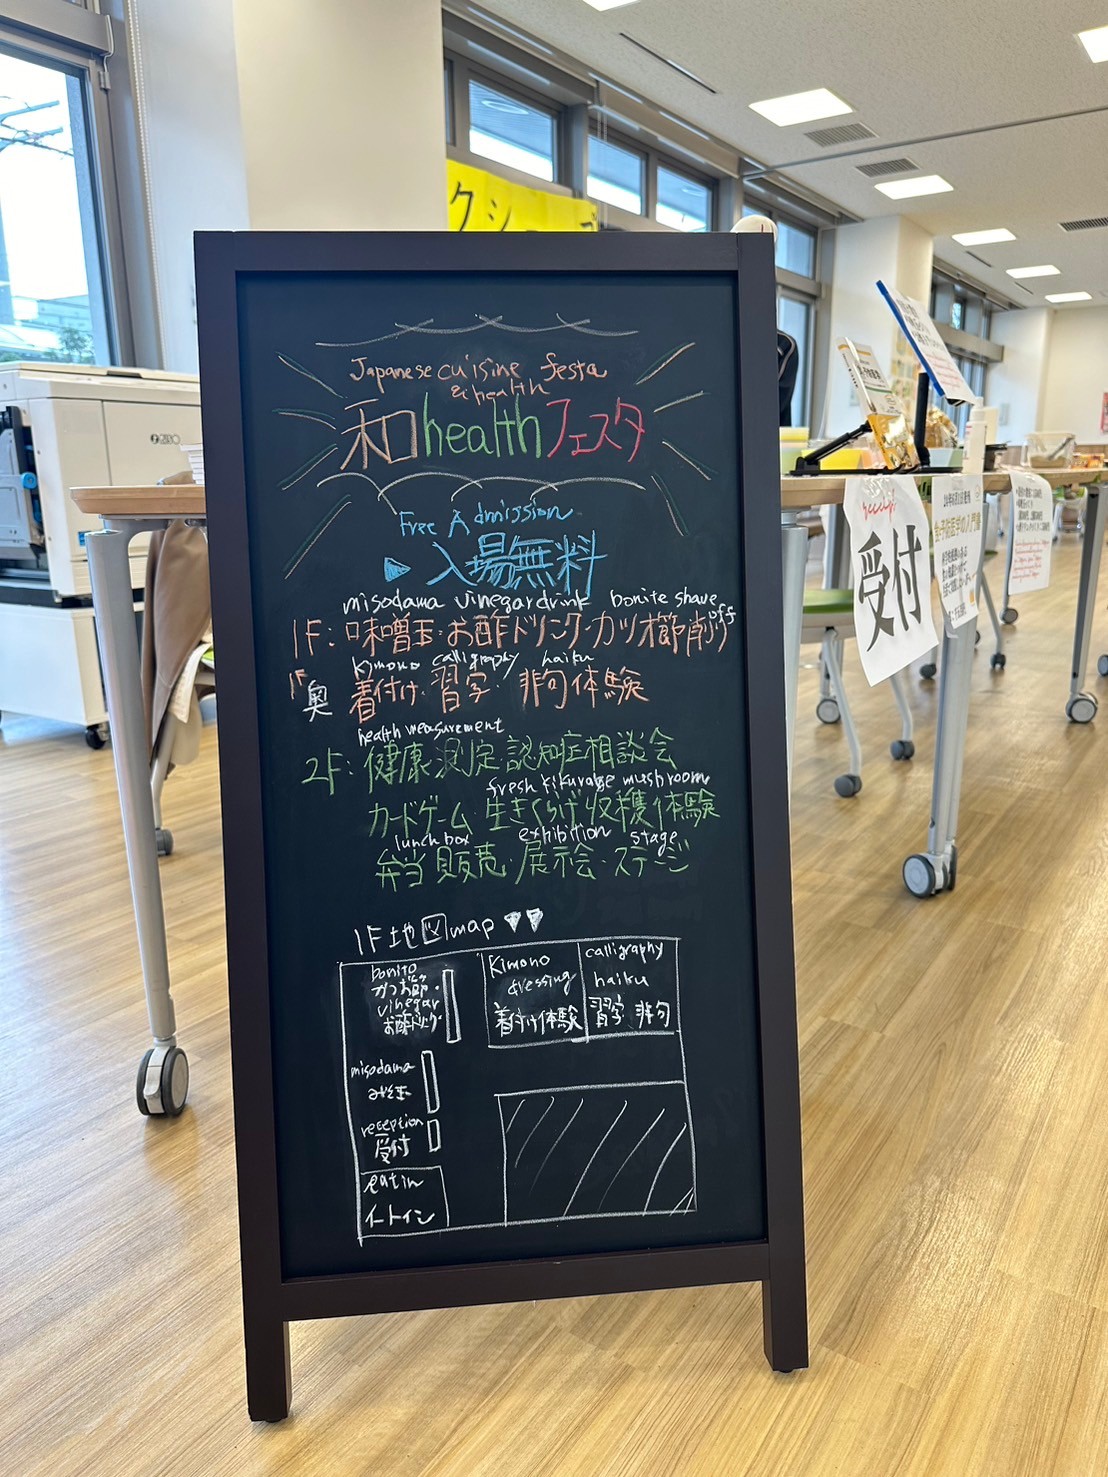 Japanese cuisine festa
& health
和healthフェスタ
Free Admission
▶ 入場無料
misodama vinegar drink bonite shave off
1F: 味噌玉・お酢ドリンク・カツオ節削り
kimono calligraphy haiku
1F奥 着付け・習字・非句体験
health measurement
2F: 健康測定・認知症相談会
fresh kikurage mushroom
カードゲーム・生きくらげ収穫体験
lunch box exhibition stage
弁当販売・展示会・ステージ
1F地図map
bonito
かつお節・
vinegar
お酢ドリンク
Kimono
dressing
着付け体験
calligraphy
haiku
習字 非句
misodama
みそ玉
reception
受付
eatin
イートイン
クショ
受付